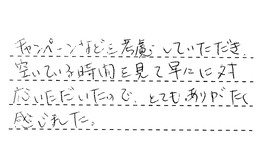 キャンペーンなどを考慮していただき、
空いている時間を見て早にに対
応いただいたので、とてもありがたく
感じれした。